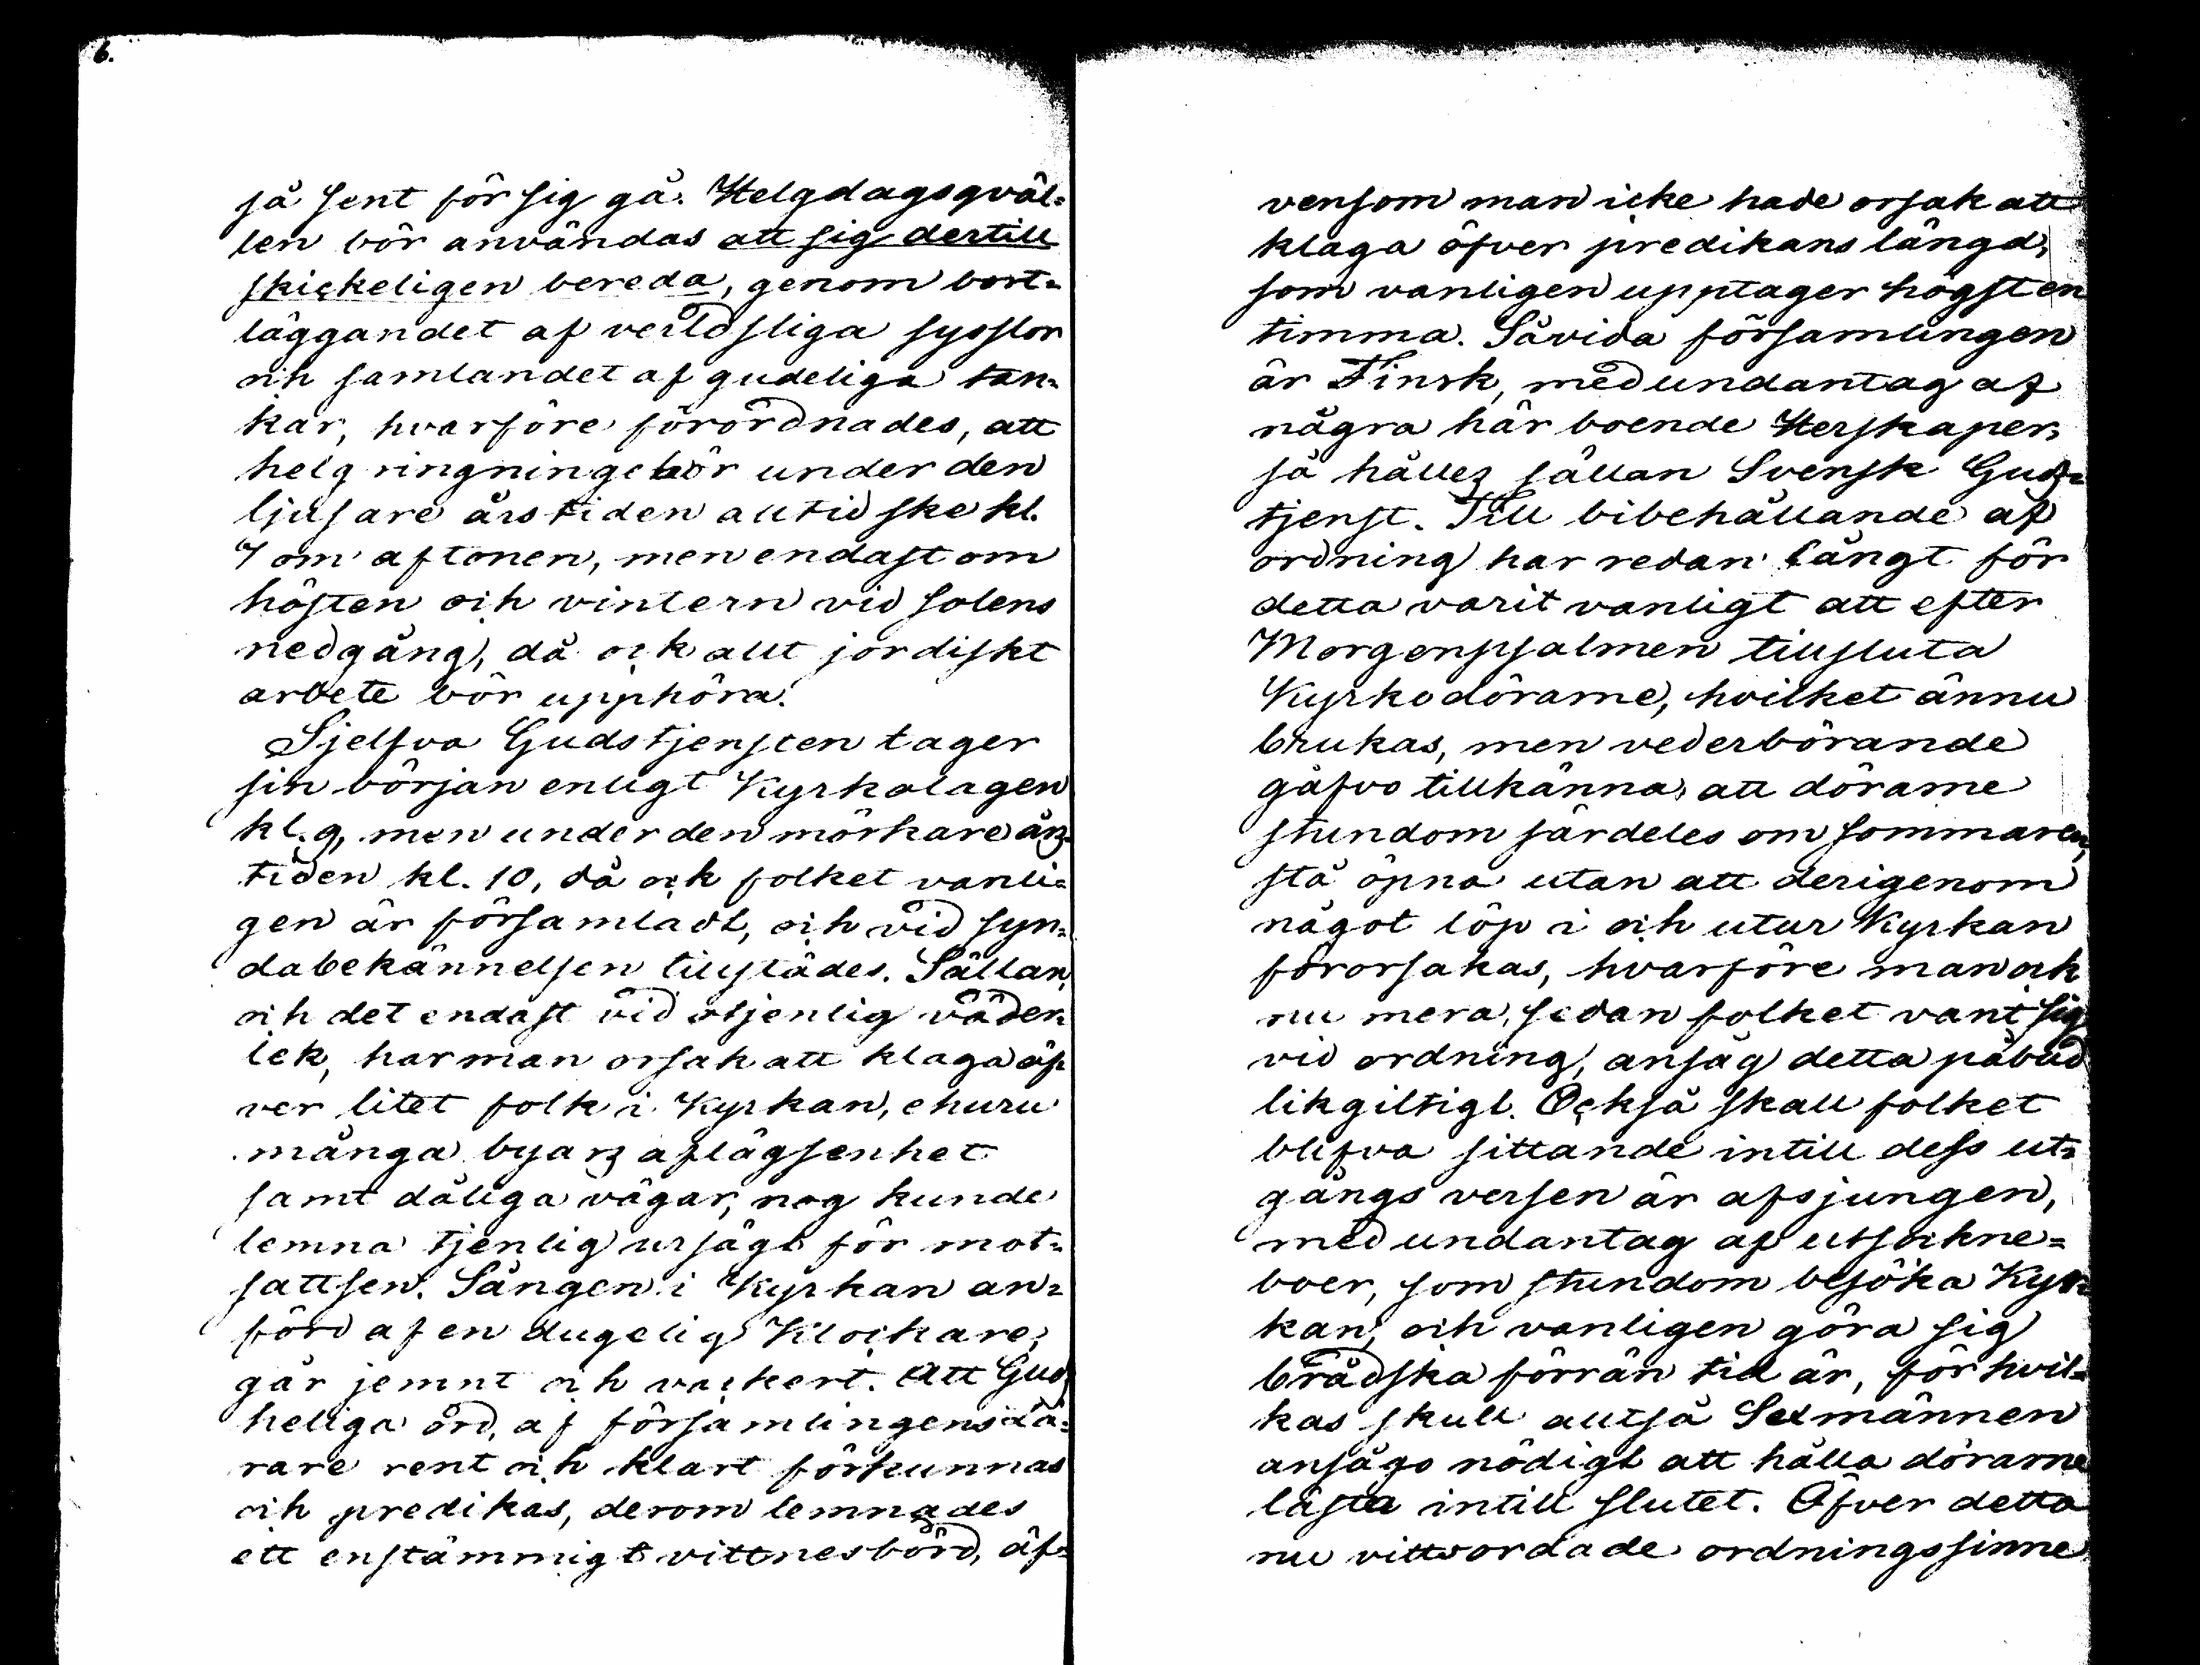 6.
så sent för sig gå. Helgdagsqväl-
len bör användas att sig dertill
skickeligen bereda, genom bort-
läggandet af verldsliga sysslor
och samlandet af gudeliga tan-
kar, hvarföre förordnades, att
helgringninge bör under den
ljusare årstiden alltid ske kl.
7 om aftonen, men endast om
hösten och vintern vid solens
nedgång, då ock allt jordiskt
arbete bör upphöra.
Sjelfva Gudstjensten tager
sin början enligt Kyrkolagen
kl. 9, men under den mörkare års-
tiden kl. 10, då ock folket vanli-
gen är församladt, och vid syn-
dabekännelsen tillstädes. Sällan,
och det endast vid otjenlig väder-
lek, har man orsak att klaga öf-
ver litet folk i Kyrkan, ehuru
många byars aflägsenhet
samt dåliga vägar, nog kunde
lemna tjenlig ursägt för mot-
sattsen. Sången i Kyrkan an-
förd af en dugelig Klockare,
går jemnt och vackert. Att Guds
heliga ord, af församlingens lä-
rare rent och klart förkunnas
och predikas, derom lemnades
ett enstämmigt vittnesbörd, äf-
vensom man icke hade orsak att
klaga öfver predikans längd,
som vanligen upptager högst en
timma. Såvida församlingen
är Finsk, med undantag af
några här boende Herskaper,
så hålles sällan Svensk Guds-
tjenst. Till bibehållande af
ordning har redan långt för
detta varit vanligt att efter
Morgenpsalmen tillsluta
Kyrkodörarne, hvilket ännu
brukas, men vederbörande
gåfvo tillkänna, att dörarne
stundom särdeles om sommaren,
stå öpna utan att derigenom
något löp i och utur Kyrkan
förorsakas, hvarföre man ock
nu mera, sedan folket vant sig
vid ordning, ansåg detta påbud
likgiltigt. Också skall folket
blifva sittande intill dess ut-
gångs versen är afsjungen,
med undantag af utsockne-
boer, som stundom besöka Kyr-
kan, och vanligen göra sig
brådska förrän tid är, för hvil-
kas skull alltså Sexmännen
ansågo nödigt att hålla dörarne
låsta intill slutet. Öfver detta
nu vittsordade ordningssinne